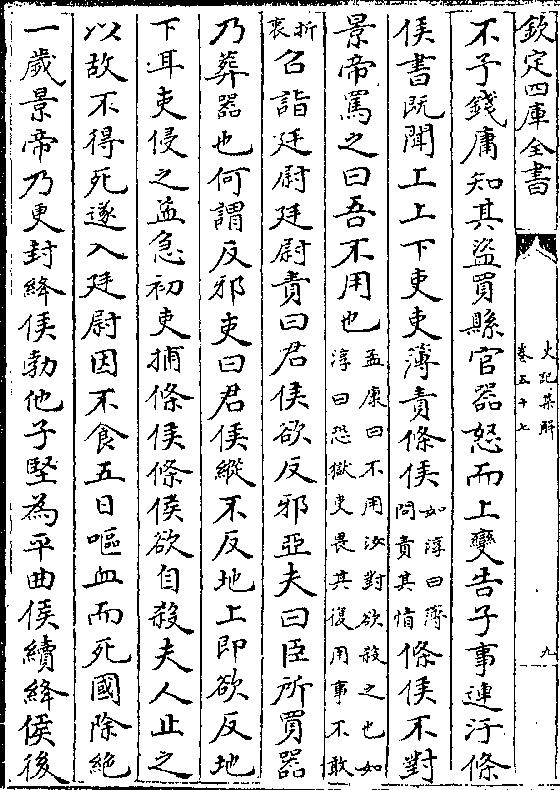 欽定四庫全書
史記集解
卷五十七
九
不予錢庸知其盜買縣官器怒而上變告子事連汙條
侯書既聞上上下吏吏薄責條侯如淳曰薄問責其情條侯不對
景帝罵之曰吾不用也孟康曰不用汝對欲殺之也如淳曰恐獄吏畏其復用事不敢
折衷召詣廷尉廷尉責曰君侯欲反邪亞夫曰臣所買器
乃葬器也何謂反邪吏曰君侯縱不反地上即欲反地
下耳吏侵之益急初吏捕條侯條侯欲自殺夫人止之
以故不得死遂入廷尉因不食五日嘔血而死國除絕
一歲景帝乃更封絳侯勃他子堅為平曲侯續絳侯後